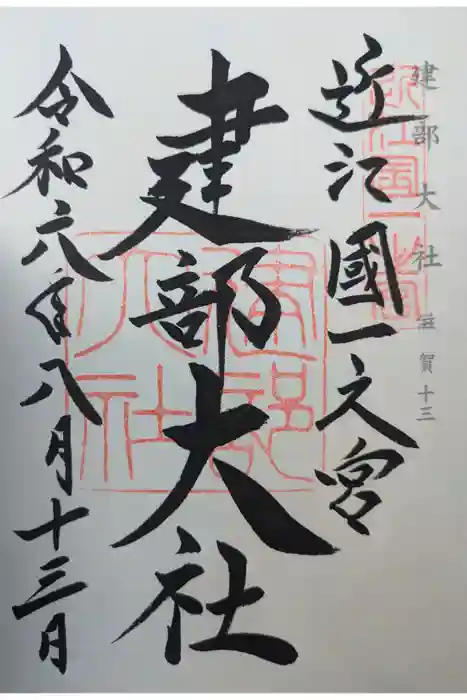 建部大社 滋賀十三
近江國一之宮
近江国一之宮
建部大社
建部大社
令和六年八月十三日